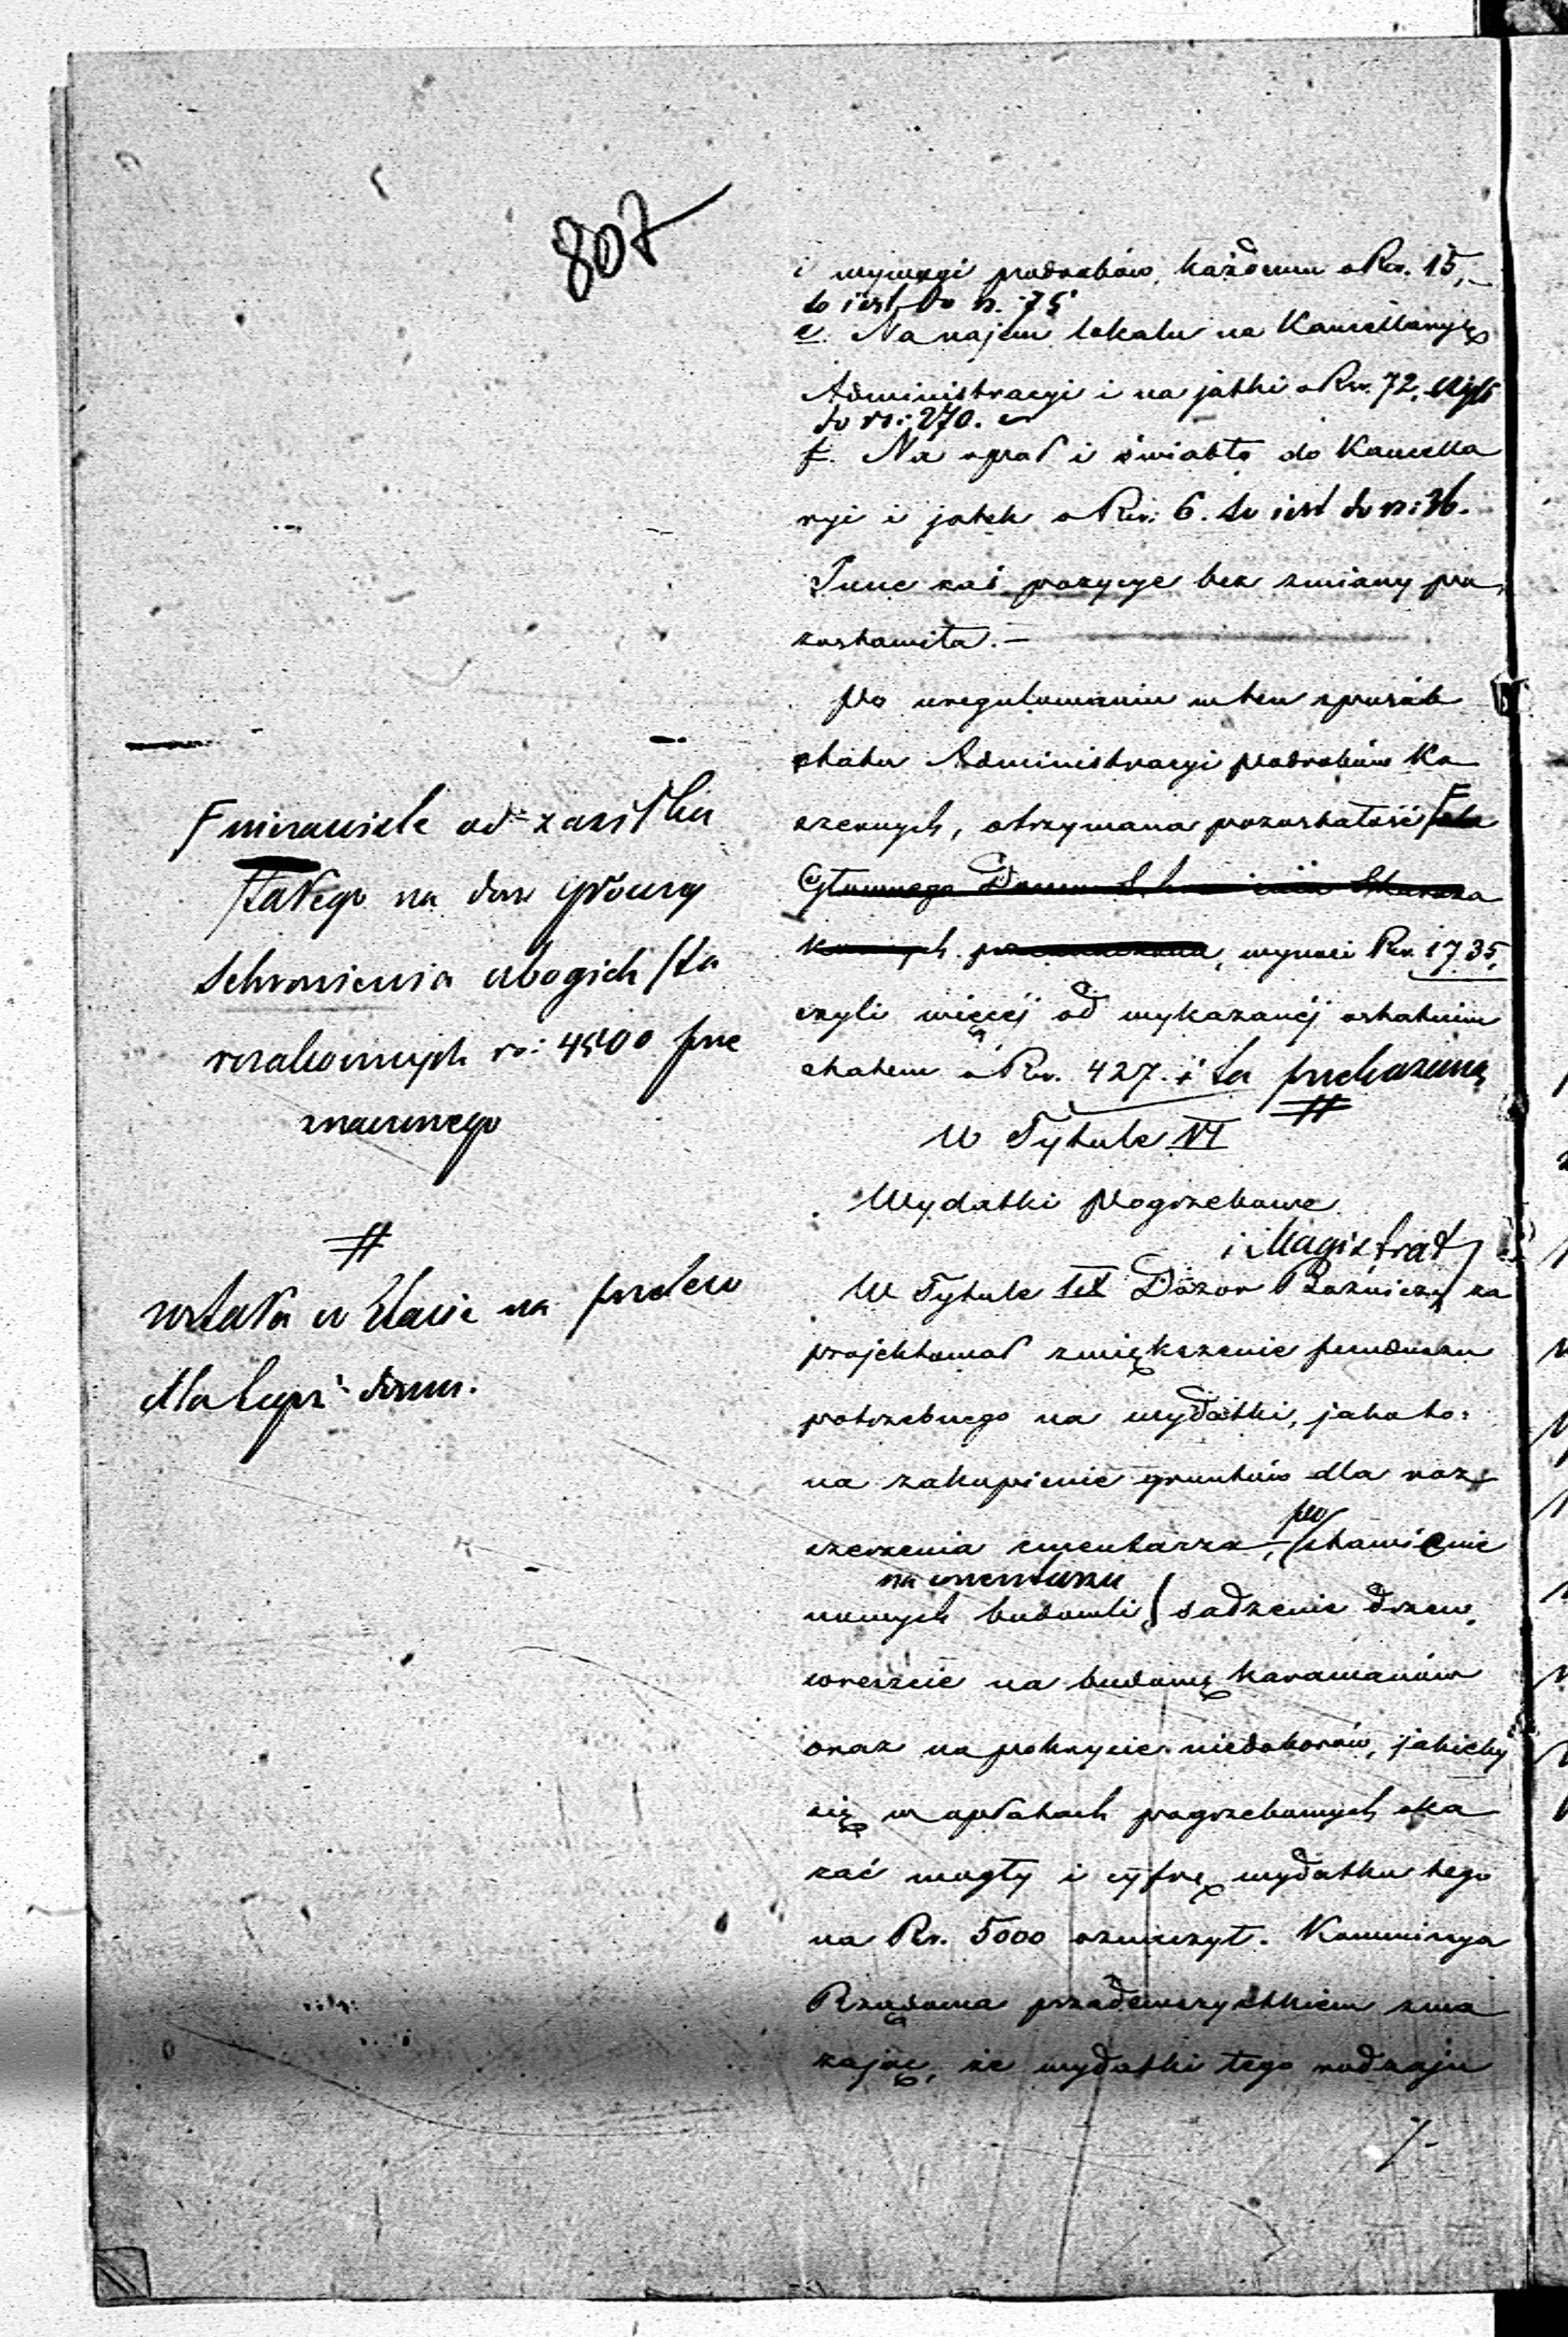 807
i wywozi podrobów, każdemu o Rs. 15,
to iest do rs. 75
e. Na najem lokalu na Kancellaryę
Administracyi i na jatki o Rs. 72, czyli
do rs: 270.
f. Na opał i światło do Kancella
ryi i jatek o Rs: 6. to iest do rs: 36.
Inne zaś pozycye bez zmiany po
zostawiła. —
Po uregulowaniu w ten sposób
etatu Administracyi podrobów ko
szernych, otrzymana pozostałość
Głównego Domu Schronienia Staroza
konnych przeznaczona, wynosi Rs. 1735,
czyli więcéj od wykazanéj ostatnim
etatem o Rs. 427. i ta
W Tytule VI
Wydatki Pogrzebowe
i Magistrat
W Tytule Dozór Bóżniczy za
projektował zwiększenie funduszu
potrzebnego na wydatki, jako to:
na zakupienie gruntów dla roz
szerzenia cmentarza, postawienie
na cmentarzu
nowych budowli sadzenie drzew,
wreszcie na budowę karawanów
oraz na pokrycie niedoborów, jakieby
się w opłatach pogrzebowych oka
zać mogły i cyfrę wydatku tego
na Rs. 5000 oznaczył. Kommissya
Rządowa przedewszystkiem zwa
żając, że wydatki tego rodzaju
F niezawiśle od zasiłku
stałego na dom główny
Schronienia ubogich sta
rozakonnych rs: 4500 prze
znaczonego
#
została w Etacie na
dla tegoż domu.